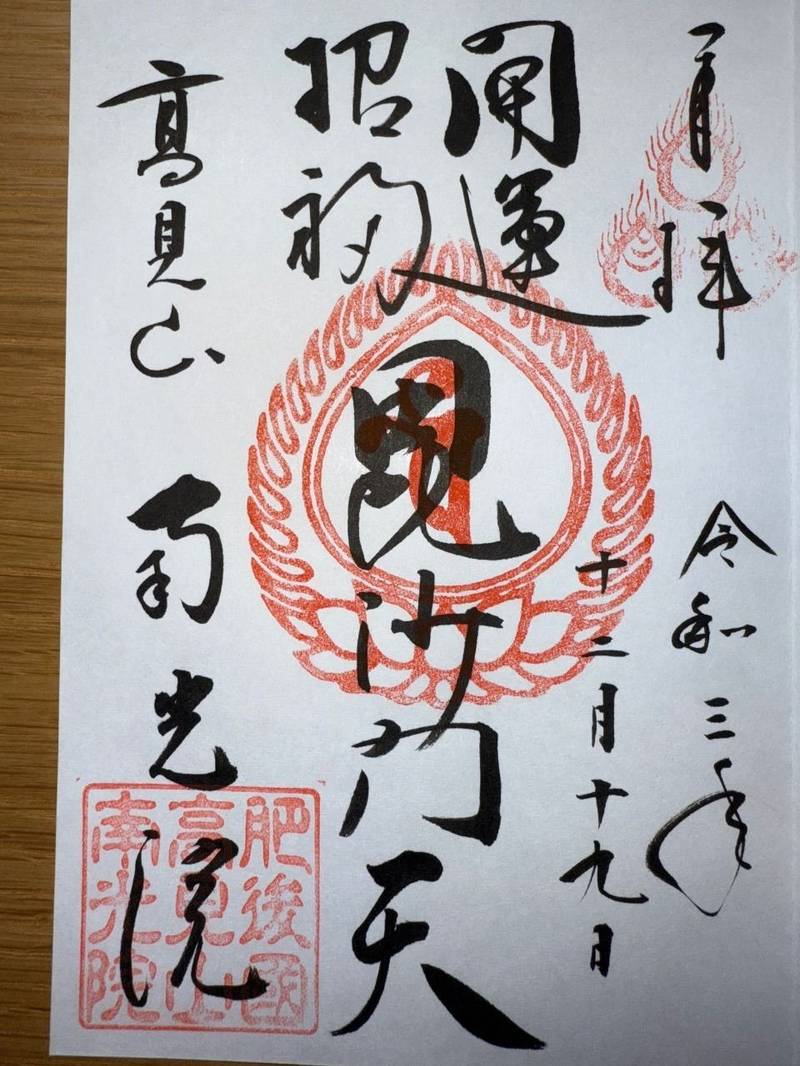 奉拝
令和三年
十二月十九日
開運
招福
毘沙門天
高見山
南光院
肥後國
高見山
南光院